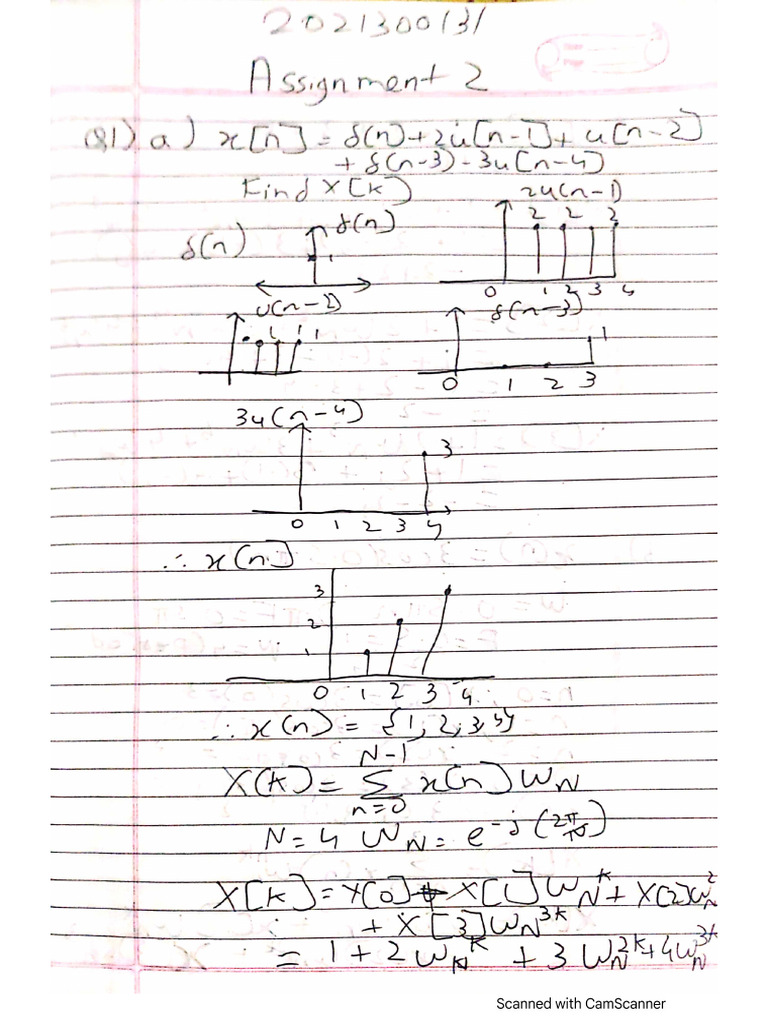 2021300131
Assignment 2
Q1) a) x[n] = δ(n)+2u[n-1]+u[n-2]
+ δ(n-3)-3u(n-4)
Find X[K]
2u(n-1)
δ(n)
δ(n)
1
2 2 2
0 1 2 3 4
u(n-2)
1 1
δ(n-3)
1
0 1 2 3
3u(n-4)
3
0 1 2 3 4
∴ x(n)
3
2
1
0 1 2 3 4
∴ x(n) = {1, 2, 3, 4}
N-1
X(K) = Σ x(n) WN
n=0
N=4 WN = e-j(2π/N)
X[K] = X[0] + X[1]WN^k + X(2)WN^2
+ X[3]WN^3k
= 1+2WN^k + 3WN^2k + 4WN^3k
Scanned with CamScanner